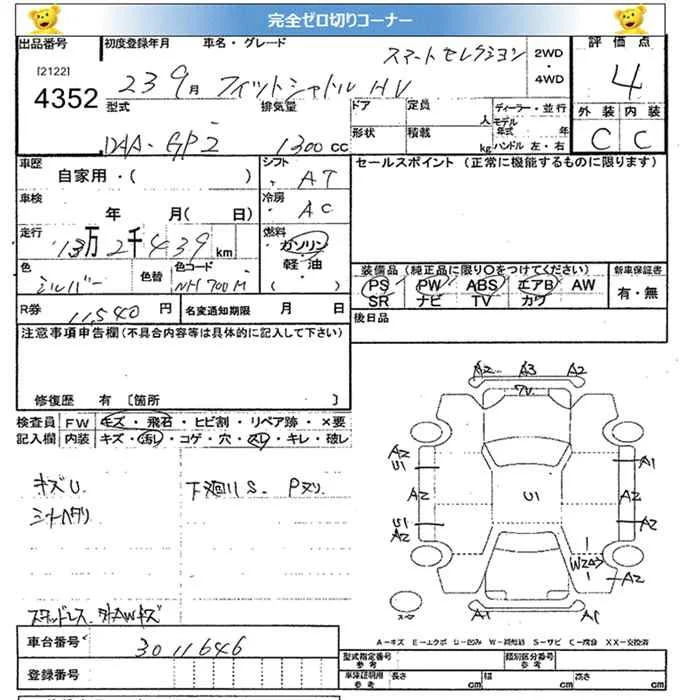 完全ゼロ切りコーナー
出品番号 初度登録年月 車名・グレード 2WD・4WD 評価点
[2122]
4352
23 9月 フィットシャトル HV スマートセレクション 4
型式 排気量 ドア 定員 人 ディーラー・並行
DAA-GP2 1300 CC
形状 積載 kg モデル年式 年 ハンドル 左・右
外装 内装
C C
車歴 自家用・( ) シフト AT
セールスポイント (正常に機能するものに限ります)
車検 年 月( 日) 冷房 AC
走行 13万2千439km 燃料 ガソリン・軽油・( )
色 シルバー 色替 色コード NH700M
装備品 (純正品に限り〇をつけてください) 新車保証書
PS PW ABS エアB AW 有・無
SR ナビ TV カワ
R券 11,540円 名変通知期限 月 日
後日品
注意事項申告欄(不具合内容等は具体的に記入して下さい)
修復歴 有 〔箇所 〕
検査員 FW キズ・飛石・ヒビ割・リペア跡・×要
記入欄 内装 キズ・汚レ・コゲ・穴・スレ・キレ・破レ
キズU 下廻りS Pヌリ
シートヘタリ
スタッドレス 外AWキズ
A2 A3 A2
A2 U1 A1
A2 U1 A2
U1 A2 A2
W2 A2
A1 A1
スペア
A-キズ E-エクボ U-凹み W-補修跡 S-サビ C-腐食 XX-交換済
車台番号 3011646
登録番号
型式指定番号 参考 類別区分番号 参考
車庫証明用 参考 長さ cm 幅 cm 高さ cm